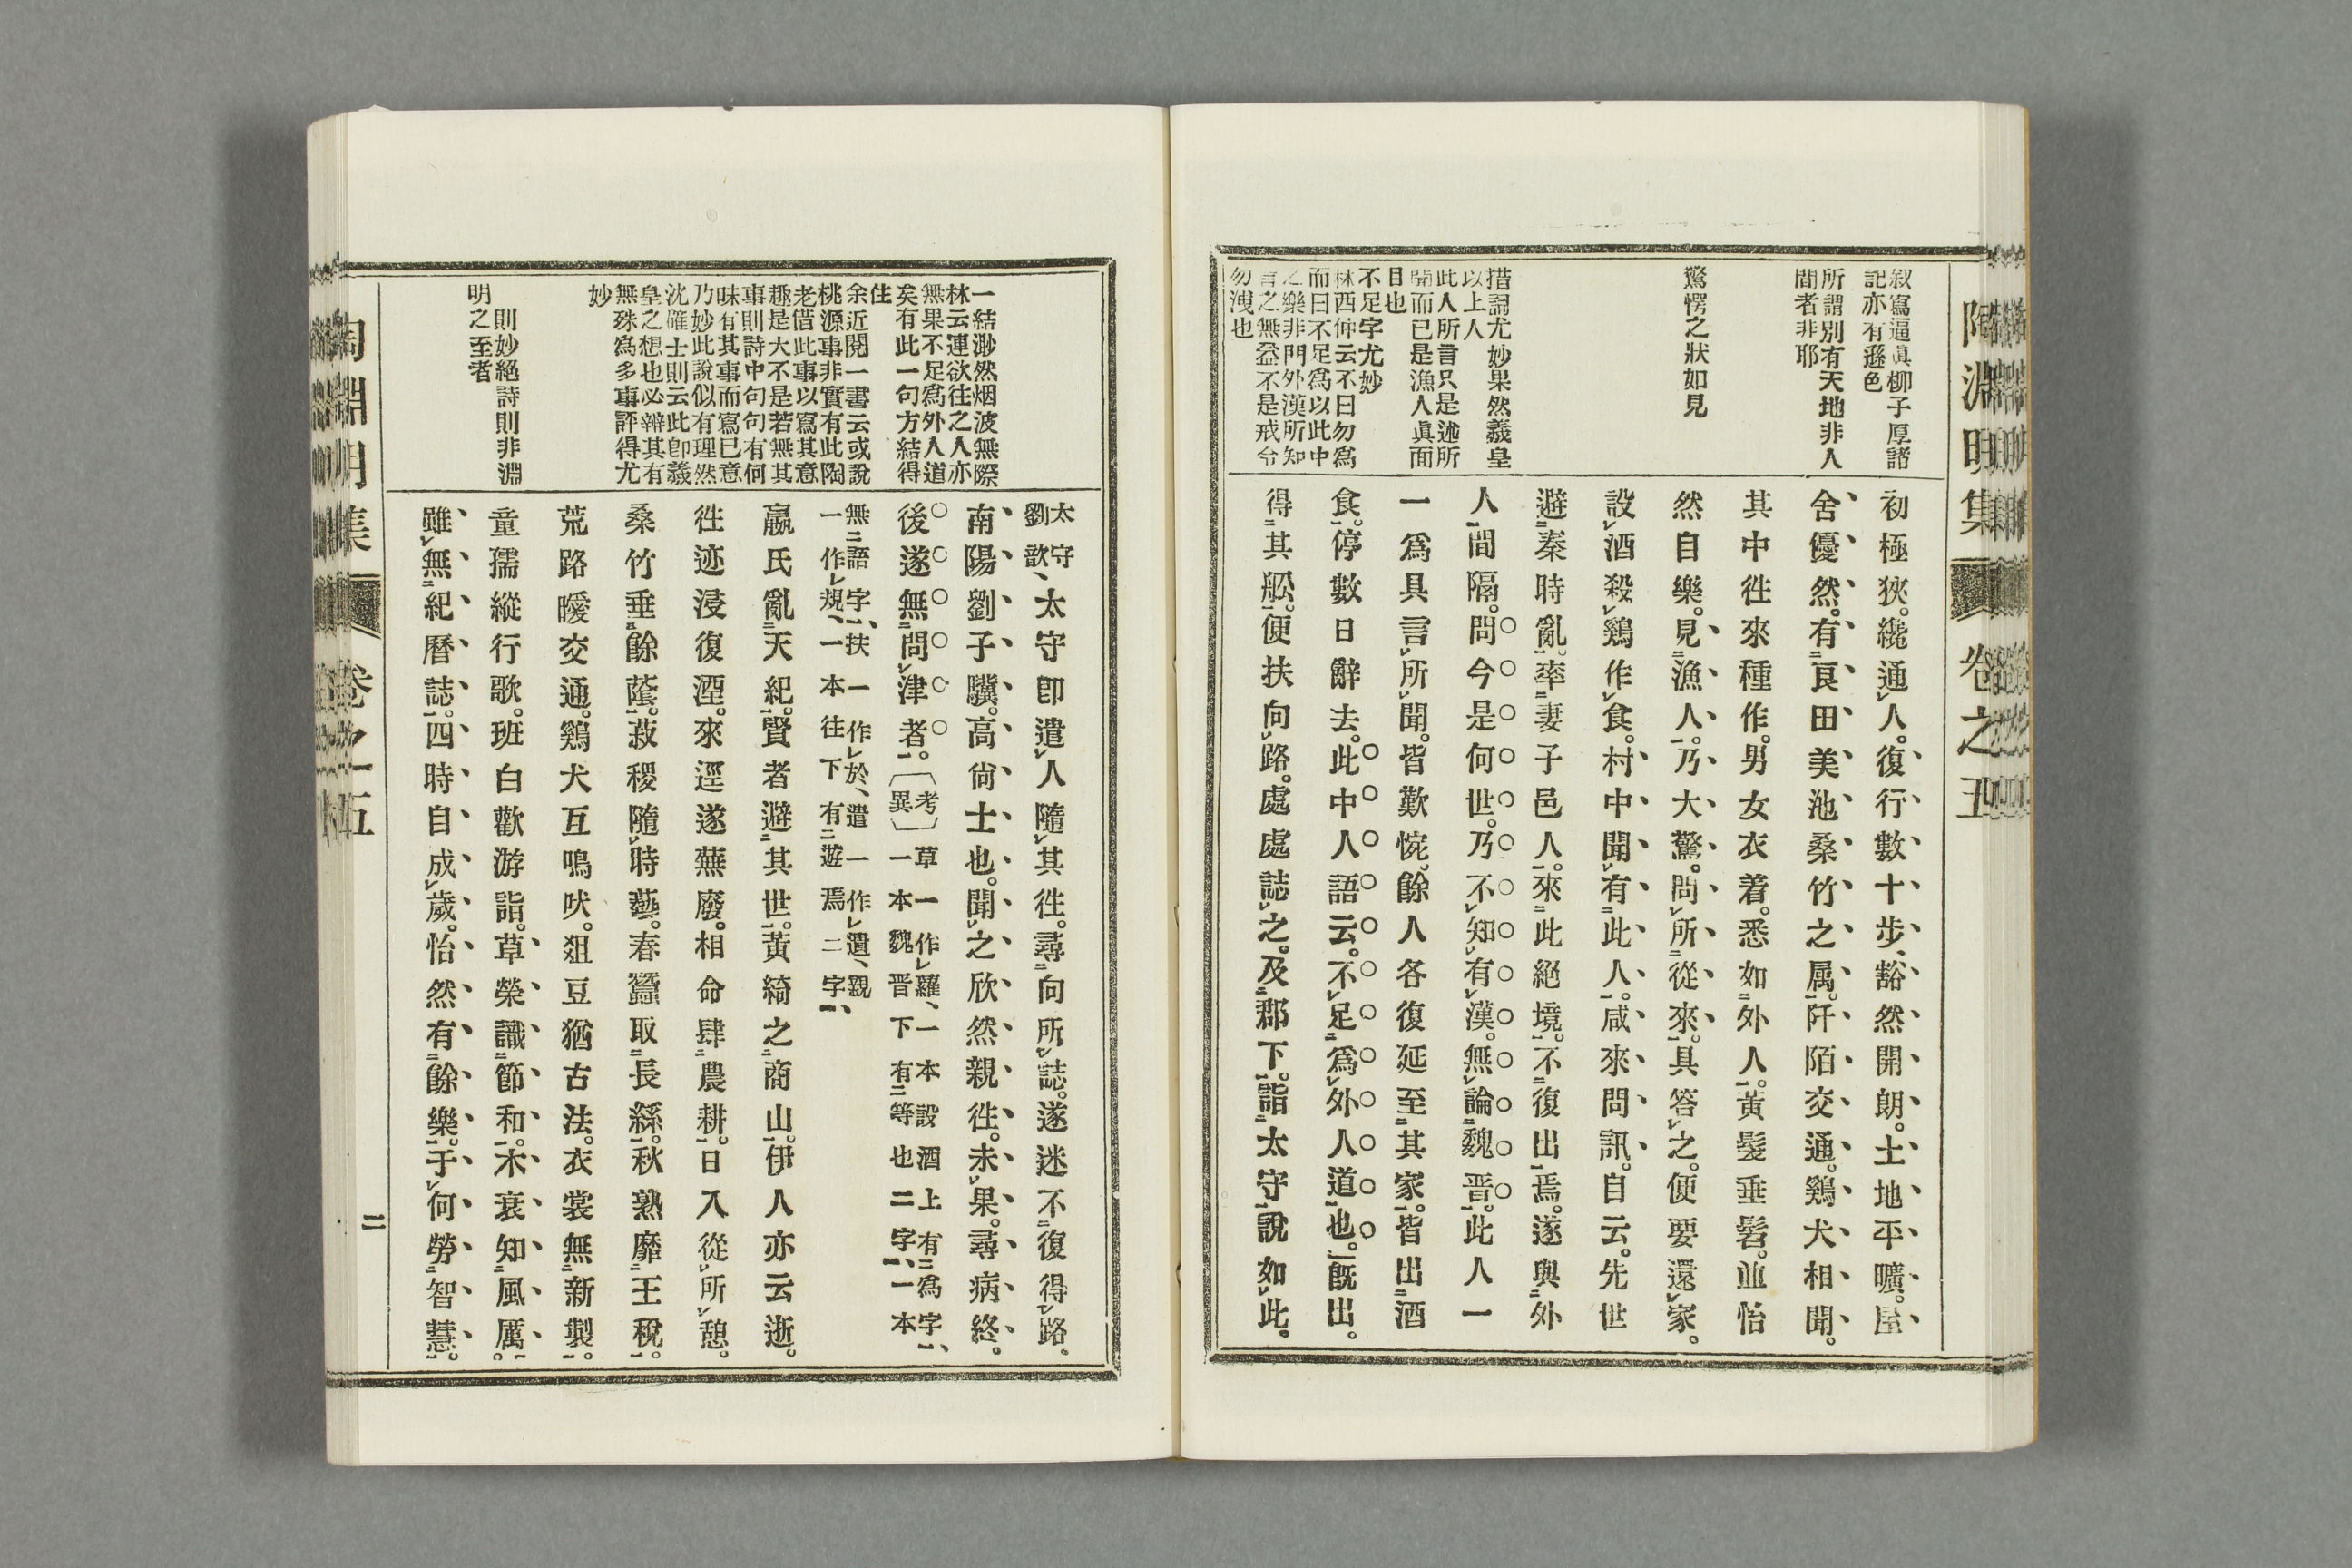 陶淵明集
卷之五
叙寫逼眞柳子厚諸
記亦有遜色
所謂別有天地非人
間者非耶
驚愕之狀如見
措詞尤妙果然羲皇
以上人
此人所言只是述所
聞而已是漁人眞面
目也
不足字尤妙
林西仲云不曰勿爲
而曰不足爲以此中
之樂非門外漢所知
言之無益不是戒令
勿洩也
初極狹。纔通レ人。復行數十步、豁然開朗。土地平曠。屋
舍優然。有二良田美池桑竹之属一。阡陌交通。鷄犬相聞。
其中徃來種作。男女衣着。悉如二外人一。黃髮垂髫。並怡
然自樂。見二漁人一。乃大驚。問レ所二從來一。具答レ之。便要還レ家。
設レ酒殺レ鷄作レ食。村中聞レ有二此人一。咸來問訊。自云。先世
避二秦時亂一。率二妻子邑人一。來二此絕境一。不二復出一焉。遂與二外
人一間隔。問今是何世。乃不レ知レ有レ漢。無レ論二魏晋一。此人一
一爲具言レ所レ聞。皆歎惋。餘人各復延至二其家一。皆出二酒
食一。停數日辭去。此中人語云。不レ足下爲レ外人道上也。既出。
得二其舩一。便扶向レ路。處處誌レ之。及二郡下一。詣二太守一說如レ此。
一結渺然烟波無際
林云連欲往之人亦
無果不足爲外人道
矣有此一句方結得
住
余近閱一書云或說
桃源事非實有此陶
老借此事以寫其意
趣是大不是若無其
事則詩中句句有何
味有其事而寫已意
乃妙此說似有理然
沈確士則云此卽羲
皇之想也必辯其有
無殊爲多事評得尤
妙
則妙絕詩則非淵
明之至者
太守
劉歆、太守卽遣レ人隨レ其徃。尋二向所レ誌。遂迷不二復得レ路、
南陽劉子驥。高尙士也。聞レ之欣然親徃。未レ果。尋病終。
後遂無二問レ津者一。〔考異〕草一作レ羅、一本設酒上有二爲字一、
一本魏晋下有二等也二字一、一本
無二語字一、扶一作レ於、遣一作レ還、親
一作レ規、一本往下有二遊焉二字一、
嬴氏亂二天紀一。賢者避二其世一。黃綺之二商山一。伊人亦云逝。
徃迹浸復湮。來逕遂蕪廢。相命肆二農耕一。日入從レ所レ憩。
桑竹垂二餘蔭一。菽稷隨レ時藝。春蠶取二長絲一。秋熟靡二王稅一。
荒路曖交通。鷄犬互鳴吠。俎豆猶古法。衣裳無二新製一。
童孺縱行歌。班白歡游詣。草榮識二節和一。木衰知二風厲一。
雖レ無二紀曆誌一。四時自成レ歲。怡然有二餘樂一。于レ何勞二智慧一。
陶淵明集
卷之五
二